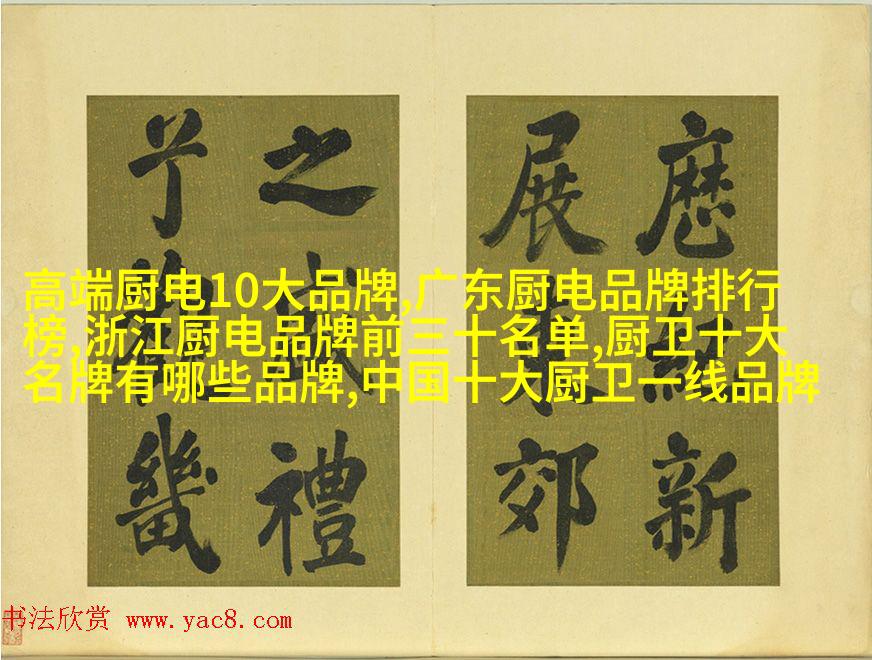 高端厨电10大品牌,广东厨电品牌排行
榜,浙江厨电品牌前三十名单,厨卫十大
名牌有哪些品牌,中国十大厨卫一线品牌
新
展郊
之禮
畿
书法欣赏 www.yac8.com